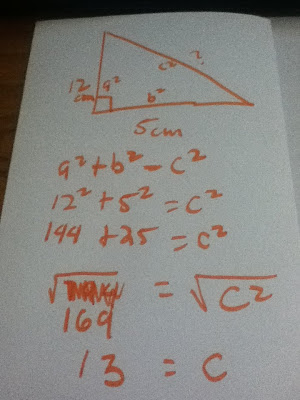 c² ?
12 cm a² b²
5cm
a² + b² - c²
12² + 5² = c²
144 + 25 = c²
√ = √c²
169
13 = c